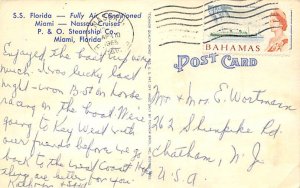 S.S. Florida — Fully Air Conditioned
Miami — Nassau Cruises
P. & O. Steamship Co.
Miami, Florida
BAHAMAS
POST CARD
Enjoyed the boat trip very
much. I was lucky last
night - won $ on horse
racing on the boat. We're
going to Key West with
our friends before we go
back to the West Coast. Hope
they are better for you
Mr & Mrs E. Wortmann
262 Shunpike Rd.
Chatham, N. J.
U.S.A.